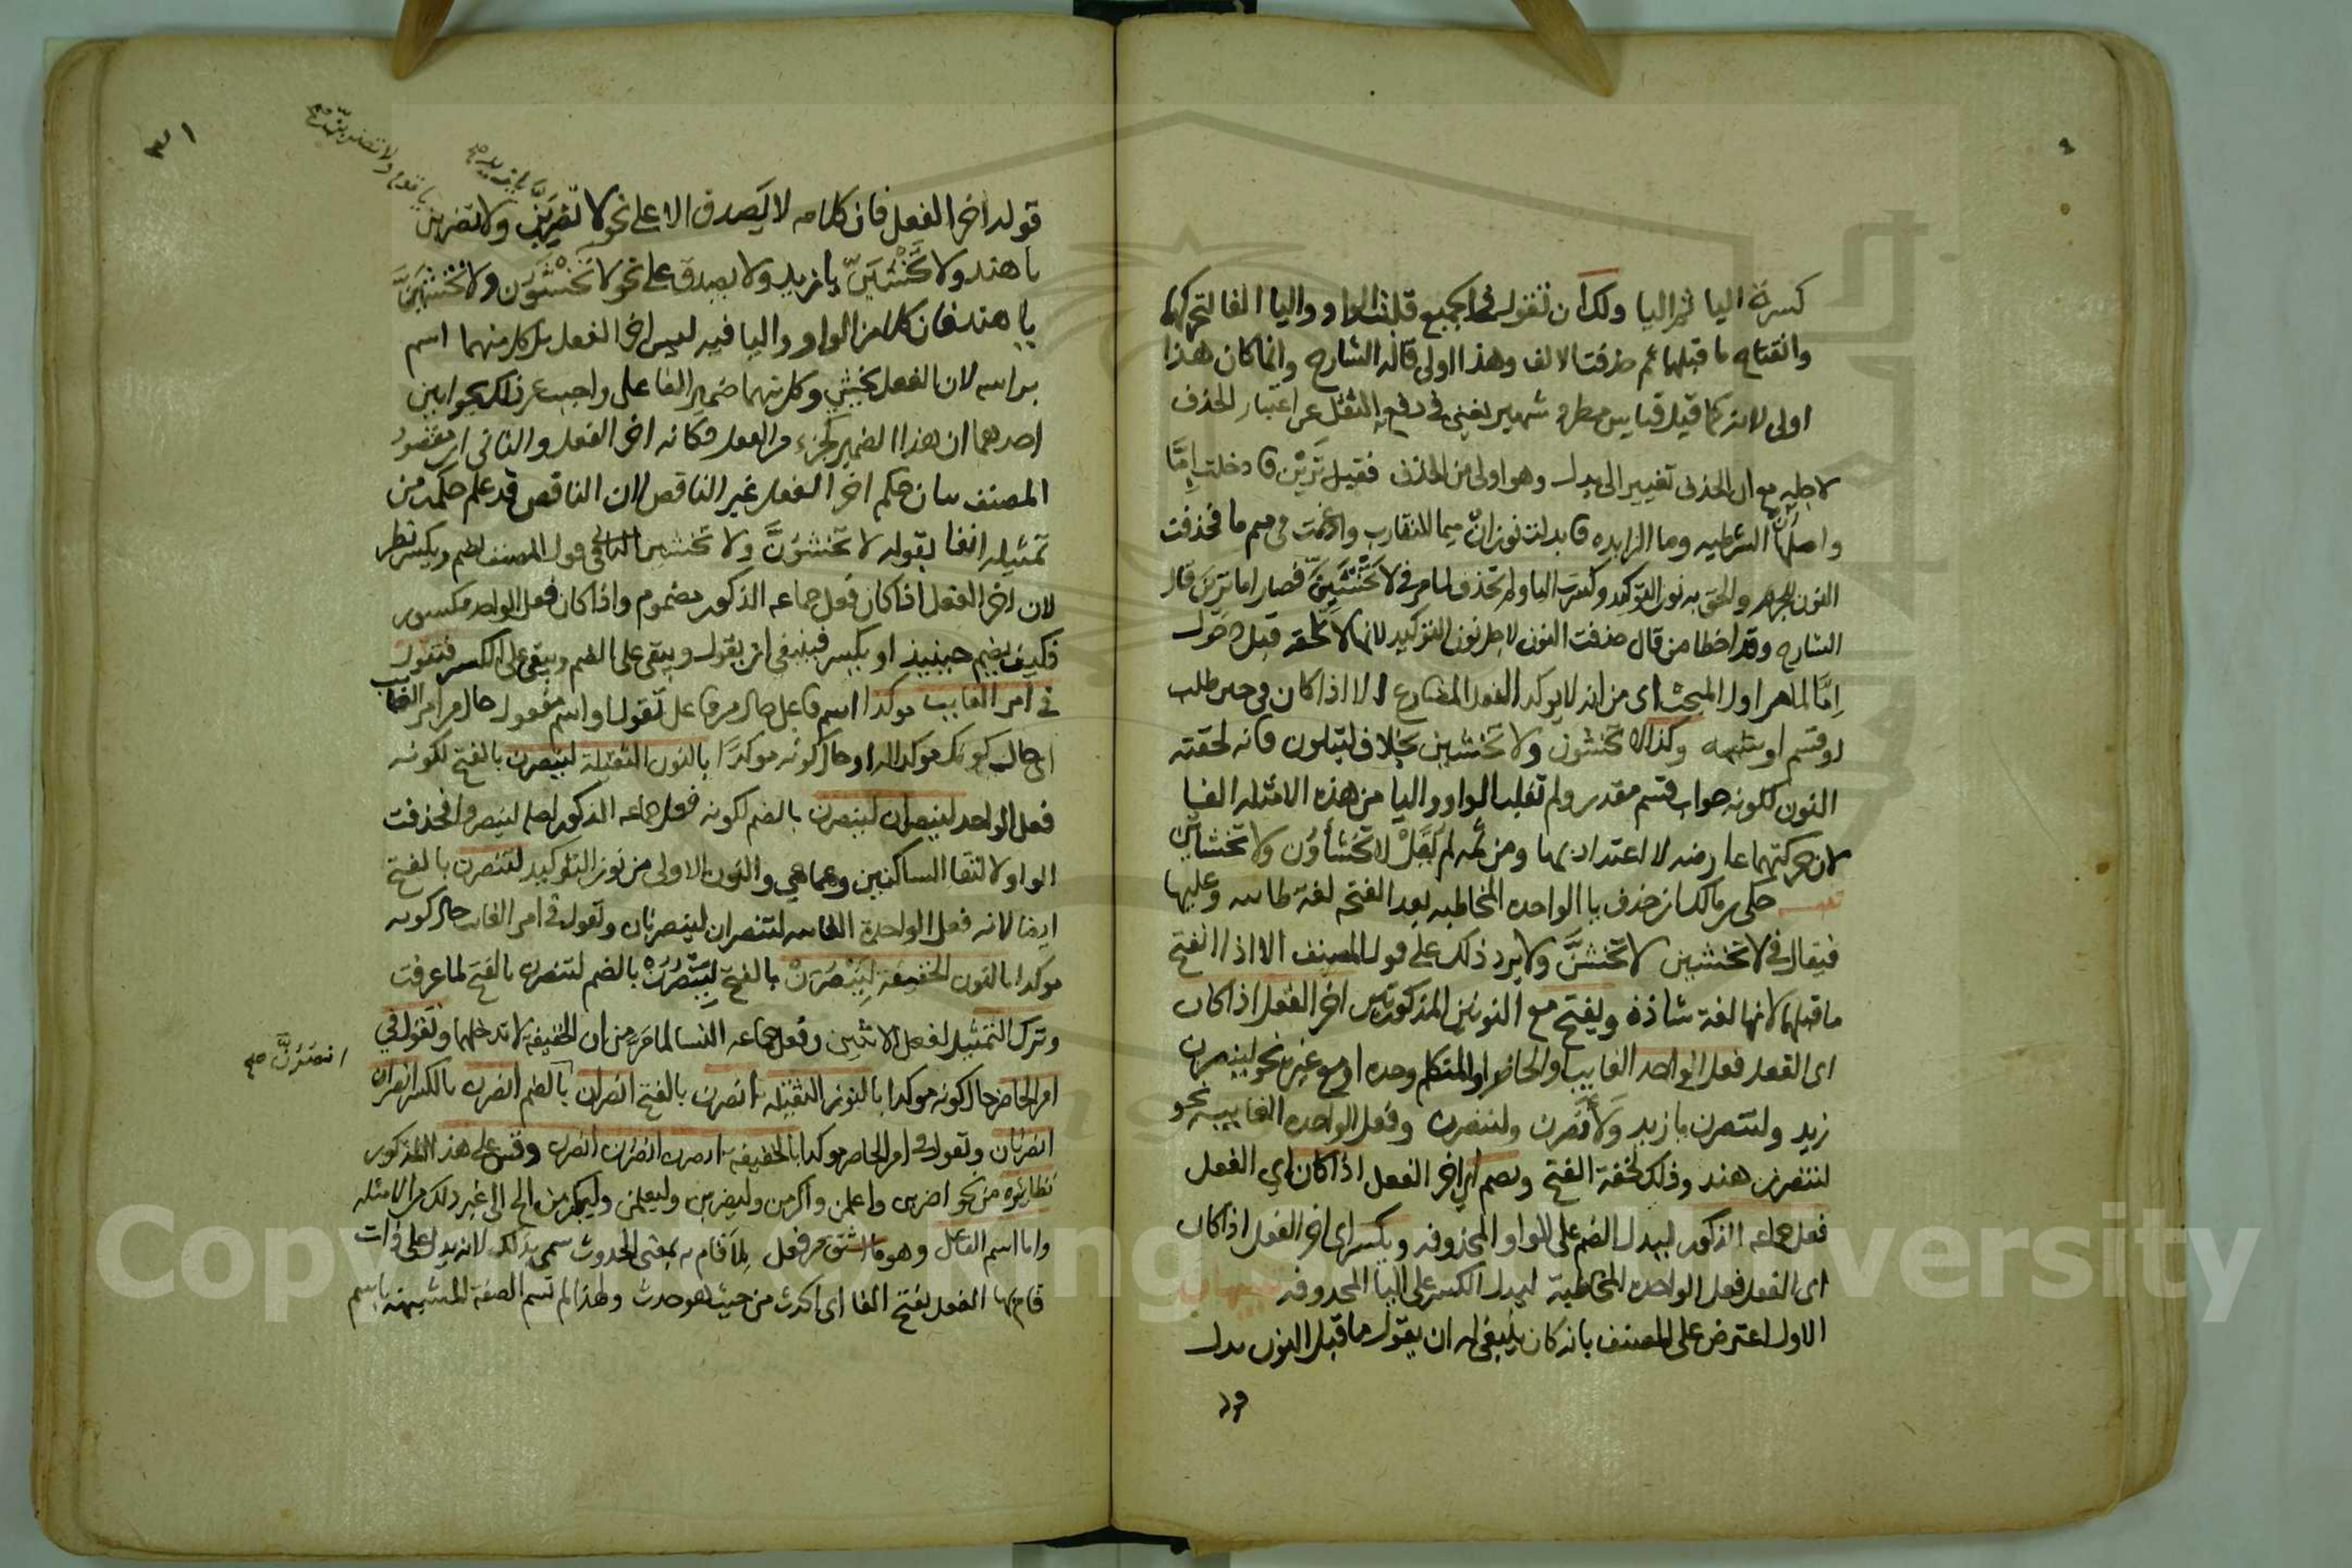 كسرة اليا ثم اليا ولك ان تقول في الجميع قلبت الواو واليا الفا لتحركهما
وانفتاح ما قبلهما ثم حذفت الالف وهذا اولى قاله الشارح وانما كان هذا
اولى لانه كما قيل قياس مطرد شهير يغني في دفع الثقل عن اعتبار الحذف
لاجله مع ان الحذف تغيير الى بدل وهو اولى من الحذف فقيل ترين فادخلت اما
واصلها ان الشرطيه وما الزايده فابدلت نون ان ميما للتقارب وادغمت في ميم ما فحذفت
النون للجزم والحق به نون التوكيد وكسرت اليا ولم تحذف لما مر في لا تخشين فصار اما ترين قال
الشارح وقد اخطا من قال حذفت النون لاجل نون التوكيد لانها لا تلحقه قبل دخول
اما لما مر اول المبحث اى من انه لا يوكد الفعل المضارع الا اذا كان في حيز طلب
او قسم او شبهه وكذا لا تخشون ولا تخشين بخلاف لتبلون فانه لحقته
النون لكونه جواب قسم مقدر ولم تقلب الواو واليا من هذه الامثلة الفا
لان حركتهما عارضه لا اعتداد بها ومن ثمه لم يقل لا تخشاون ولا تخشاين
حكى بن مالك ان حذف يا الواحده المخاطبه بعد الفتحه لغة طائيه وعليها
فيقال في لا تخشين لا تخشن ولا يرد ذلك على قول المصنف الا اذا انفتح
ما قبلهما لانها لغة شاذة ويفتح مع النونين المذكورتين اخر الفعل اذا كان
اى الفعل فعل الواحد الغايب او الحاضر او المتكلم وحده او مع غيره نحو لينصرن
زيد ولتنصرن يا زيد ولانصرن ولننصرن وفعل الواحده الغايبه نحو
لتنصرن هند وذلك لخفة الفتح ويضم اى اخر الفعل اذا كان اي الفعل
فعل جماعه الذكور ليدل الضم على الواو المحذوفه ويكسر اى اخر الفعل اذا كان
اى الفعل فعل الواحده المخاطبة ليدل الكسر على اليا المحذوفه
الاول اعترض على المصنف بانه كان ينبغي له ان يقول ما قبل النون بدل
٣١
قوله اخر الفعل فان كلامه لا يصدق الا على نحو لا تضربن ولا تضربن
يا هند ولا تخشين يا زيد ولا يصدق على نحو لا تخشون ولا تخشين
يا هند فان كلا من الواو واليا فيه ليس اخر الفعل بل كل منهما اسم
براسه لان الفعل تخشي وكل منهما ضمير الفاعل واجيب عن ذلك بجوابين
احدهما ان هذا الضمير كجزء من الفعل فكانه اخر الفعل والثاني ان مقصود
المصنف بيان حكم اخر الفعل غير الناقص لان الناقص قد علم حكمه من
تمثيله انفا بقوله لا تخشون ولا تخشين الثاني في قول المصنف يضم ويكسر نظر
لان اخر الفعل اذا كان فعل جماعه الذكور مضموم واذا كان فعل الواحد مكسور
فكيف يضم حينيذ او يكسر فينبغي ان يقول ويبقى على الضم ويبقى على الكسر فتقول
في امر الغايب موكدا اسم فاعل حال من فاعل تقول او اسم مفعول حال من امر الغايب
اى حال كونك موكدا له او حال كونه موكدا بالنون الثقيلة لينصرن بالفتح لكونه
فعل الواحد لينصران لينصرن بالضم لكونه فعل جماعه الذكور اصله لينصروا فحذفت
الواو لالتقا الساكنين وهما هي والنون الاولى من نون التوكيد لتنصرن بالفتح
ايضا لانه فعل الواحدة الغايبه لتنصران لينصرنان وتقول في امر الغايب حال كونه
موكدا بالنون الخفيفة لينصرن بالفتح لينصرن بالضم لتنصرن بالفتح لما عرفت
وترك التمثيل لفعل الاثنين وفعل جماعه النسا لما مر من ان الخفيفة لا تدخلهما وتقول في
امر الحاضر حال كونه موكدا بالنون الثقيله انصرن بالفتح انصران بالضم انصرن بالكسر انصران
انصرنان وتقول في امر الحاضر موكدا بالخفيفة انصرن انصرن انصرن وقس على هذا المذكور
نظائره من نحو اضربن واعلمن واكرمن وليضربن وليعلمن وليكرمن الى غير ذلك من الامثله
واما اسم الفاعل وهو ما اشتق من فعل لما قام به بمعنى الحدوث سمي بذلك لانه يدل على ذات
قام بها الفعل بفتح الفا اى الحدث من حيث هو حدث ولهذا لم تسم الصفة المشبهة باسم
انصرن صح
Copyright © King Saud University